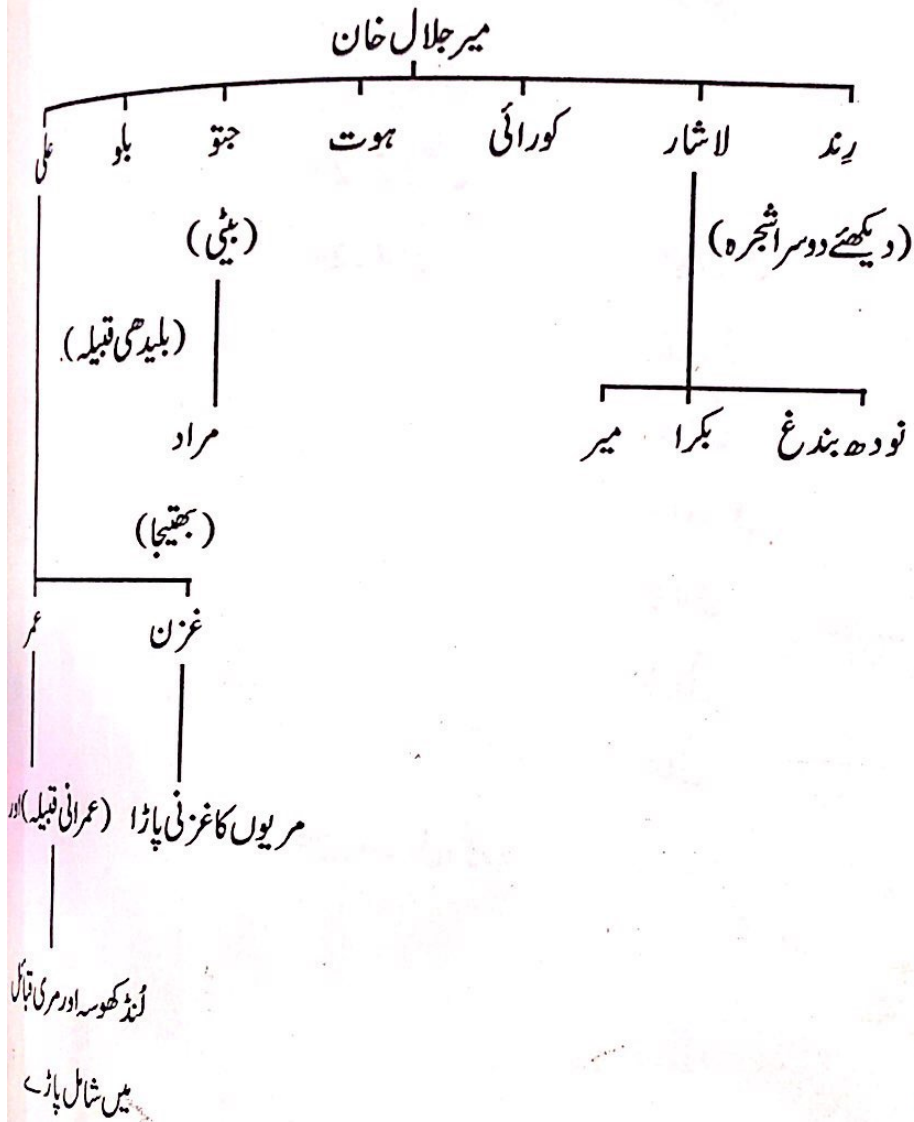 میر جلال خان
رِند لاشار کورائی ہوت جتو بلو علی
(دیکھئے دوسرا شجرہ) (بیٹی)
(بلیدھی قبیلہ)
نودھ بندغ بکرا میر مراد
(بھتیجا)
غزن عمر
مریوں کا غزنی پاڑا (عمرانی قبیلہ) اور
لُنڈ کھوسہ اور مری قبائل
میں شامل پاڑے